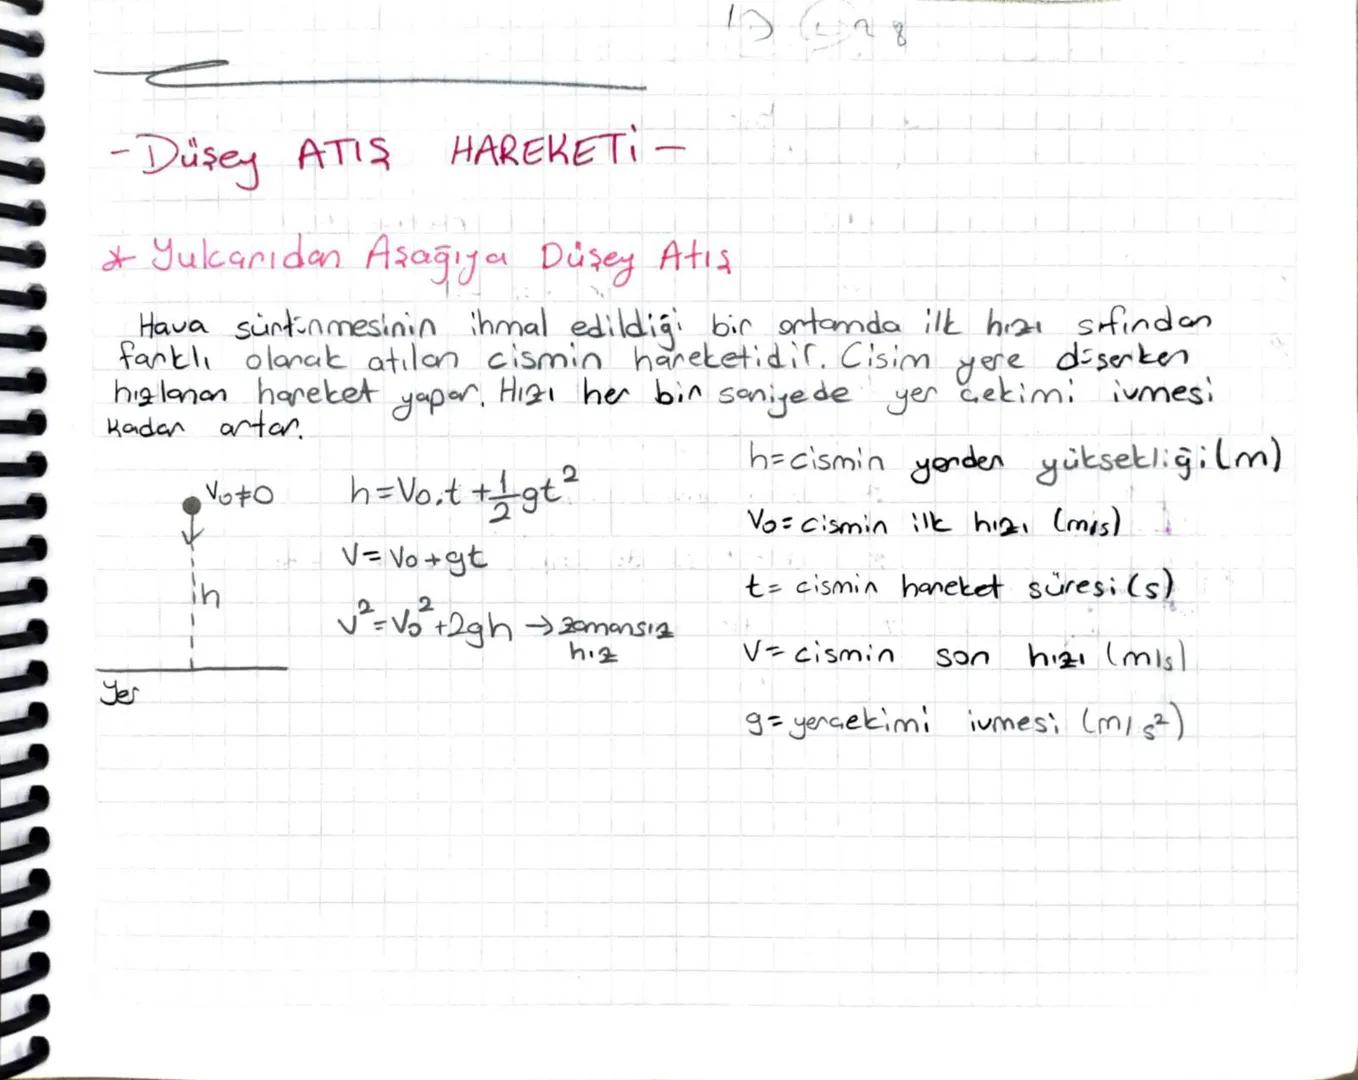 -Düşey ATIŞ HAREKETİ-
* Yukarıdan Aşağıya Düşey Atış
Hava sürtünmesinin ihmal edildiği bir ortamda ilk hızı sıfından
farklı olarak atılan cismin hareketidir. Cisim yere düşerken
hızlanan hareket yapar. Hızı her bir saniyede yer çekimi ivmesi
kadar artar.
V₀≠0
h
Yer
h=V₀.t+½gt²
V=V₀+gt
v²=V₀²+2gh → zamansız
hız
h=cismin yerden yüksekliği(m)
V₀=cismin ilk hızı (m/s)
t= cismin hareket süresi(s)
V= cismin son hızı (m/s)
g=yerçekimi ivmesi (m/s²)